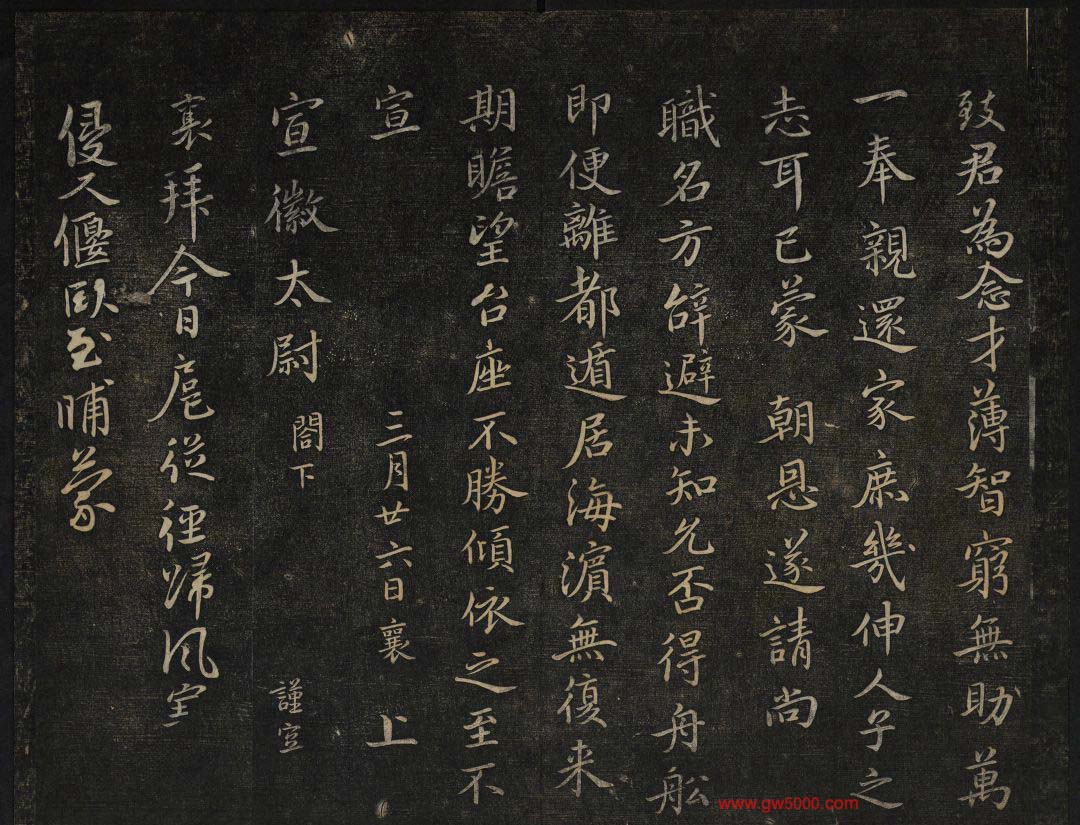 致君為念才薄智窮無助萬
一奉親還家庶幾伸人子之
志耳已蒙 朝恩遂請尚
職名方辞避未知允否得舟舩
即便離都遁居海濵無復来
期瞻望台座不勝傾依之至不
宣 三月廿六日襄 上
宣徽太尉 閤下 謹空
襄拜今日扈從徑歸風室
優又偃臥至晡蒙
www.gw5000.com